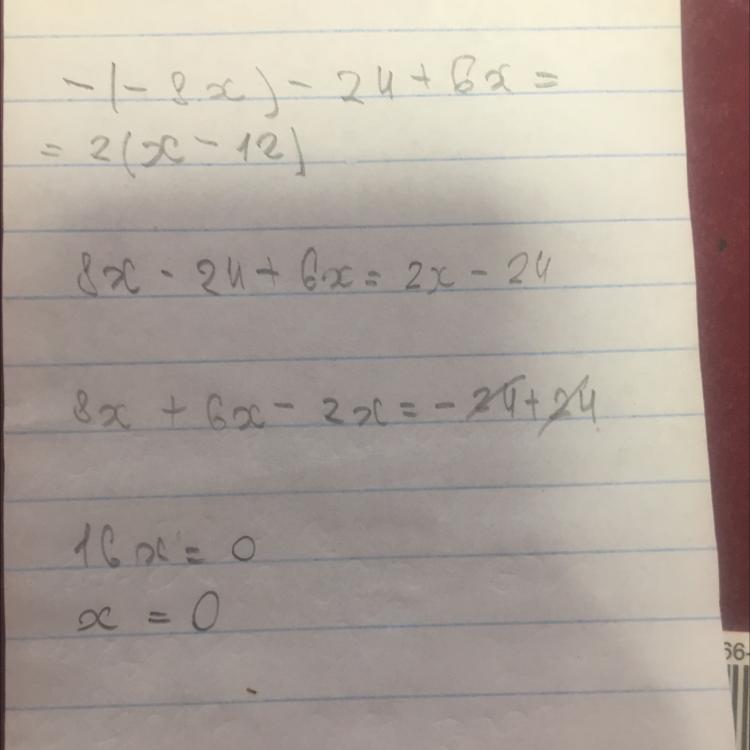 -(-8x)-24+6x=
=2(x-12)
8x-24+6x=2x-24
8x+6x-2x=-24+24
16x=0
x=0
66-